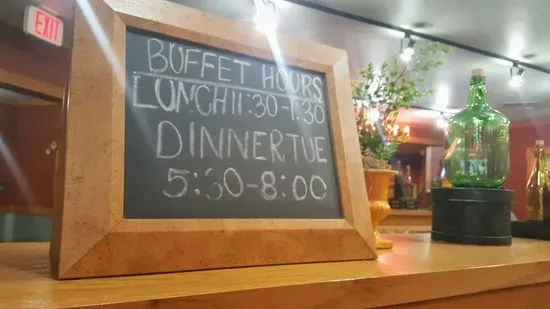 EXIT
BUFFET HOURS
LUNCH 11:30-1:30
DINNER TUE
5:30-8:00